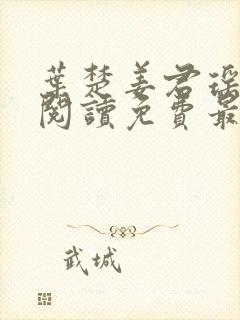 葉楚姜君瑶
閱讀免費最
武城